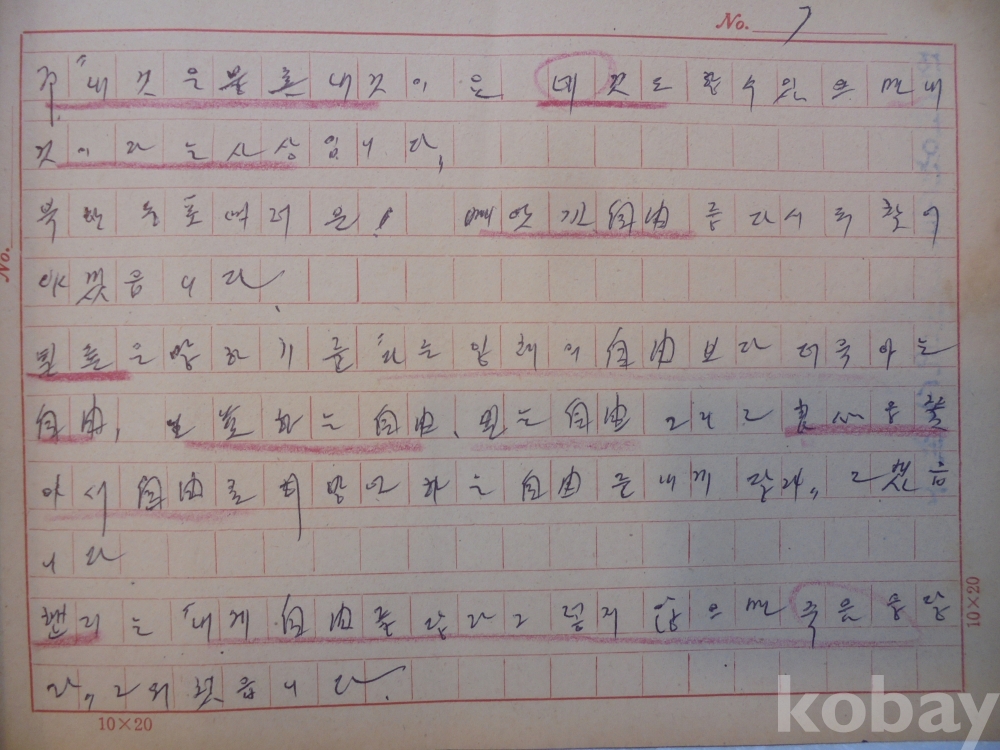 No. 7
주 "내 것은 물론 내것이은 네 것도 할 수 있으면 내
것이라는 사상입니다.
북한 동포여러은! 빼앗긴 自由를 다시 찾어
야겠읍니다.
밀톤은 말하기를 "나는 일체의 自由보다 더욱 아는
自由, 발하는 自由, 믿는 自由 그리고 良心을 쫓
아서 自由로 하는 自由를 내게 달라" 그랬음
니다
헨리는 "내게 自由를 달라 그렇지 않으면 죽음을 달
라" 그리 했읍니다.
No.
10×20
10×20
kobay